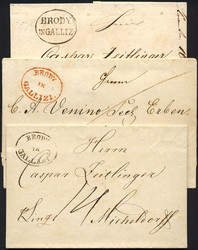 BRODY
IN GALLIZ
Caspar Zeitlinger
BRODY
IN
GALLIZI.
Herrn
C. A. Venino Seel Erben
BRODY
IN
Herrn
Caspar Zeitlinger
Micheldorff